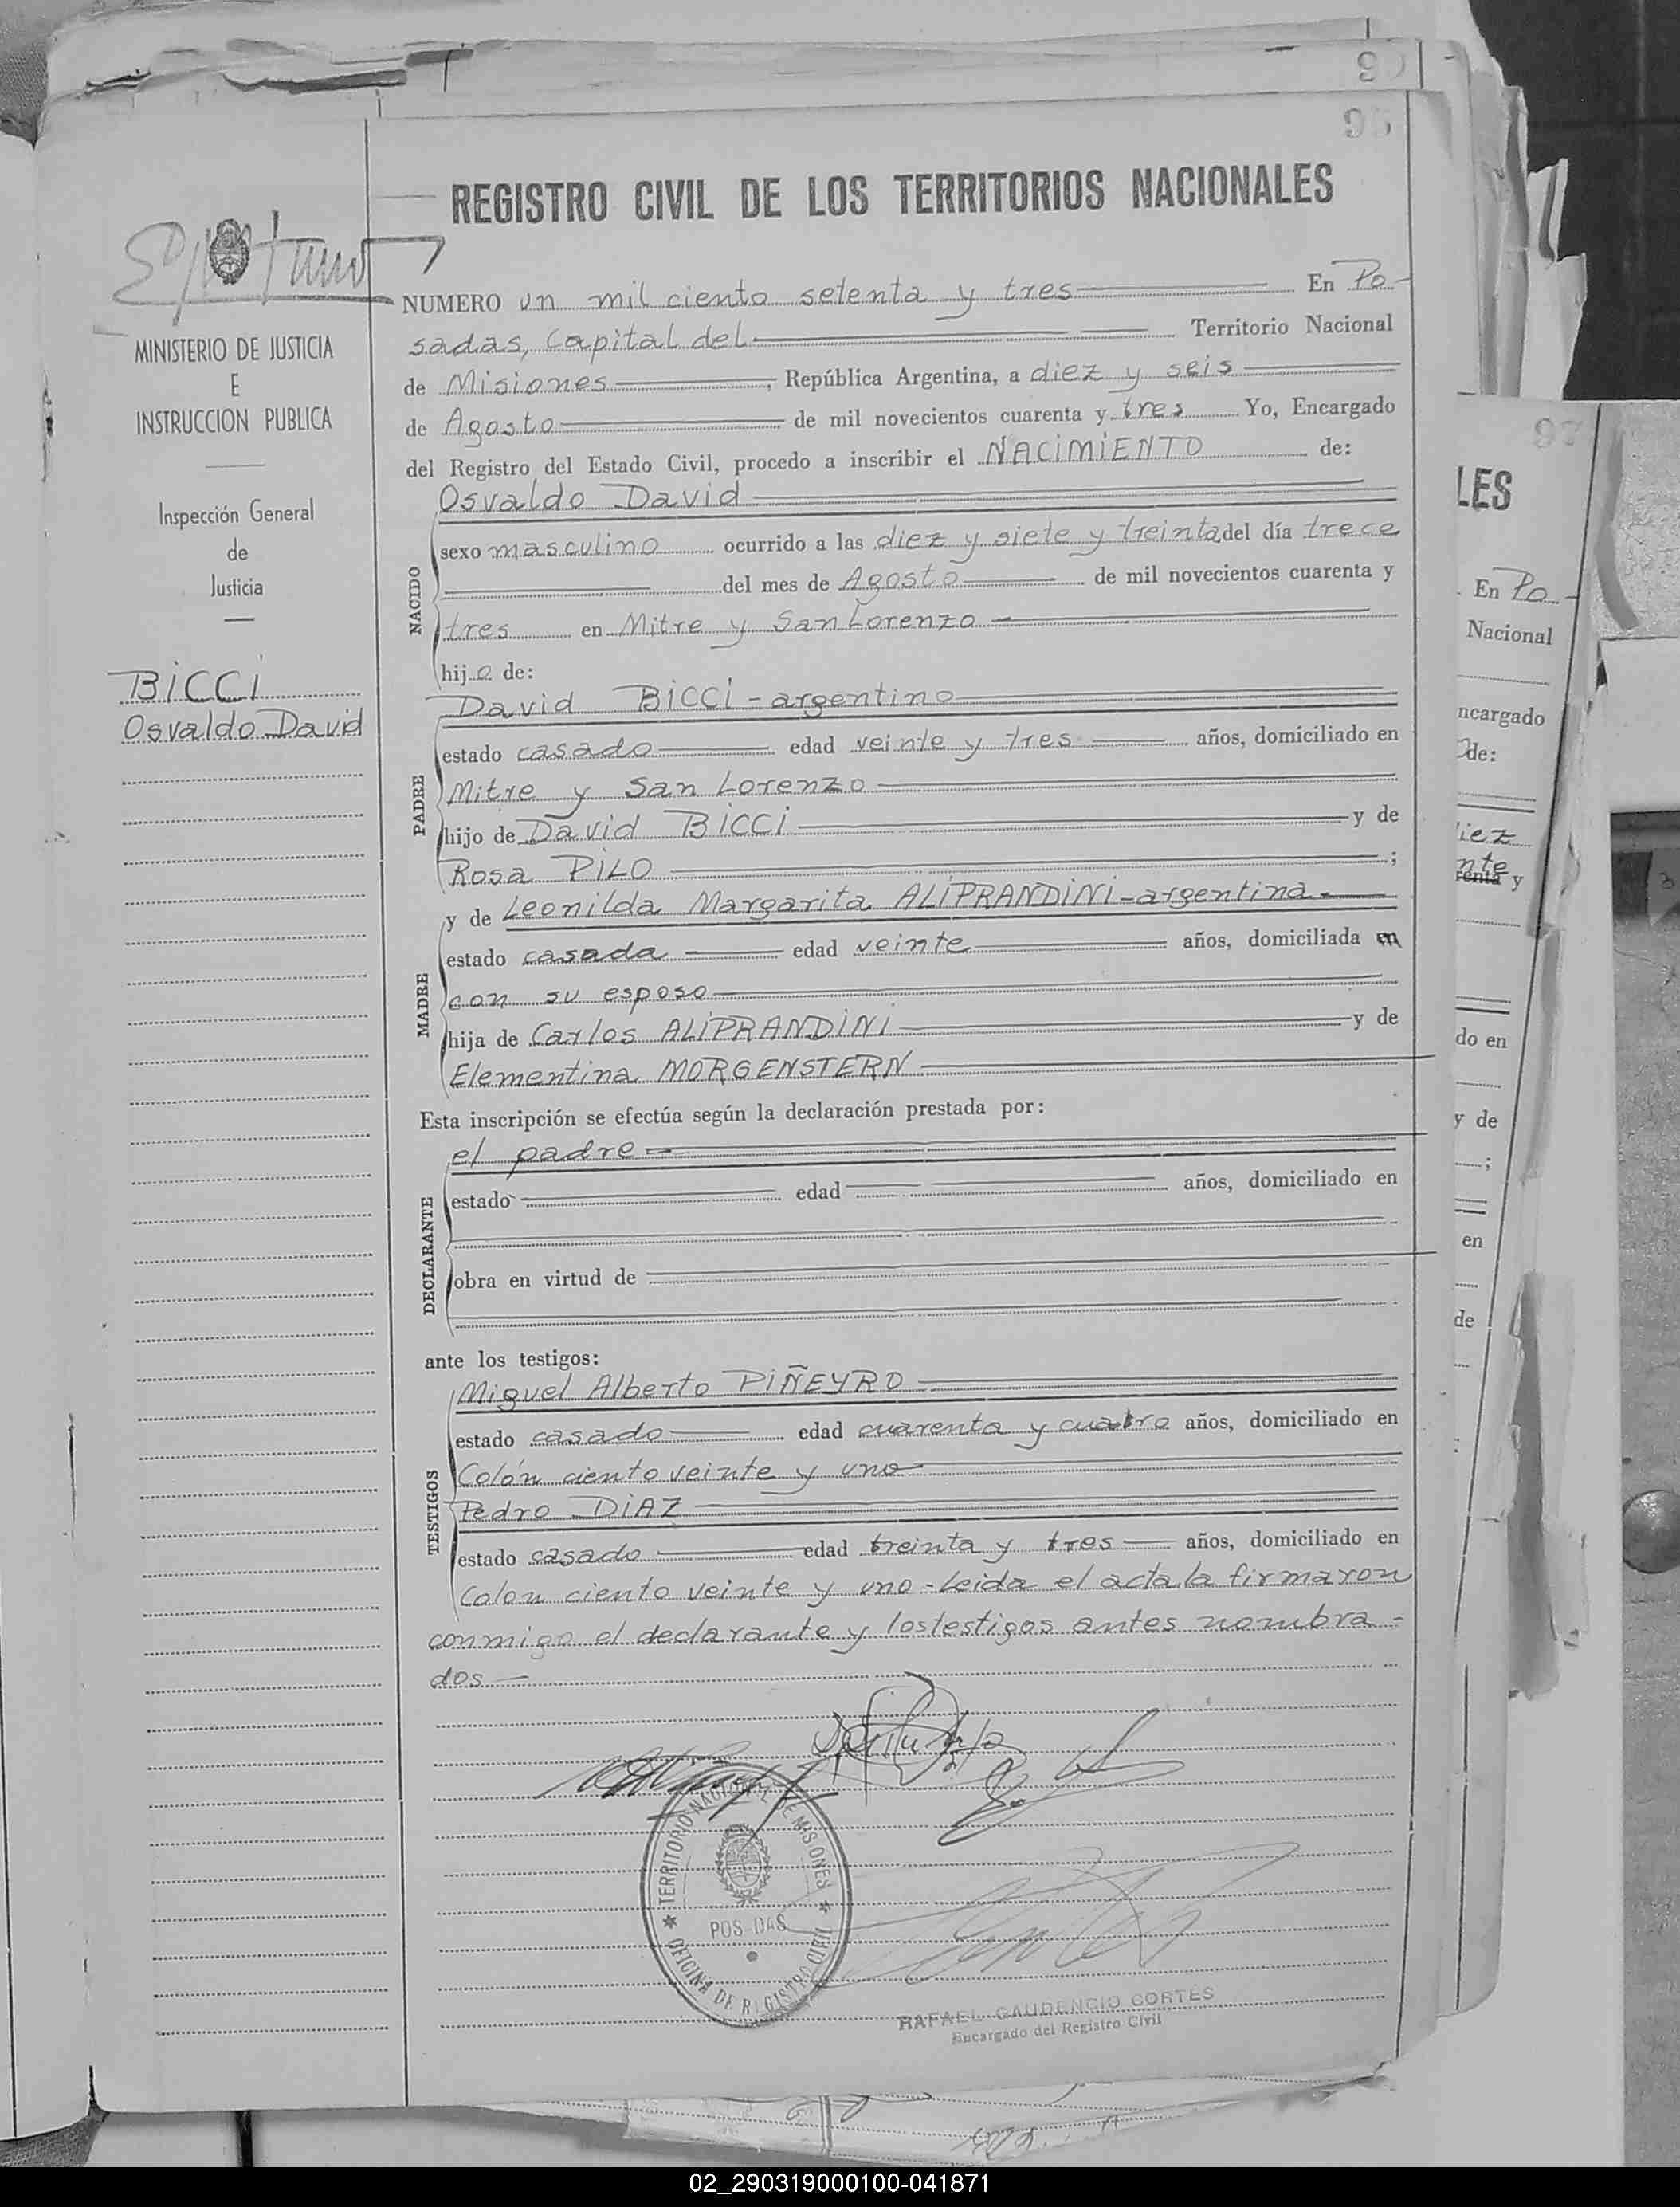 95
REGISTRO CIVIL DE LOS TERRITORIOS NACIONALES
MINISTERIO DE JUSTICIA
E
INSTRUCCION PUBLICA
Inspección General
de
Justicia
BiCCi
Osvaldo David
NUMERO un mil ciento setenta y tres En Po-
sadas, Capital del Territorio Nacional
de Misiones, República Argentina, a diez y seis
de Agosto de mil novecientos cuarenta y tres Yo, Encargado
del Registro del Estado Civil, procedo a inscribir el NACiMiENTO de:
NACIDO
Osvaldo David
sexo masculino ocurrido a las diez y siete y treinta del día trece
del mes de Agosto de mil novecientos cuarenta y
tres en Mitre y San Lorenzo
hijo de:
PADRE
David BiCCi - argentino
estado casado edad veinte y tres años, domiciliado en
Mitre y San Lorenzo
hijo de David BiCCi y de
Rosa PiLO ;
MADRE
y de Leonilda Margarita ALiPRANDiNi - argentina
estado casada edad veinte años, domiciliada en
con su esposo
hija de Carlos ALiPRANDiNi y de
Elementina MORGENSTERN
Esta inscripción se efectúa según la declaración prestada por:
DECLARANTE
el padre
estado edad años, domiciliado en
obra en virtud de
ante los testigos:
TESTIGOS
Miguel Alberto PiÑEYRO
estado casado edad cuarenta y cuatro años, domiciliado en
Colón ciento veinte y uno
Pedro DiAZ
estado casado edad treinta y tres años, domiciliado en
Colon ciento veinte y uno - Leida el acta la firmaron
conmigo el declarante y los testigos antes nombra-
dos
TERRITORIO NACIONAL DE MISIONES
POSADAS
OFICINA DE REGISTRO CIVIL
RAFAEL GAUDENCIO CORTES
Encargado del Registro Civil
LES
En Po-
Nacional
ncargado
de:
iez
nte
renta y
do en
y de
;
en
de
02_290319000100-041871